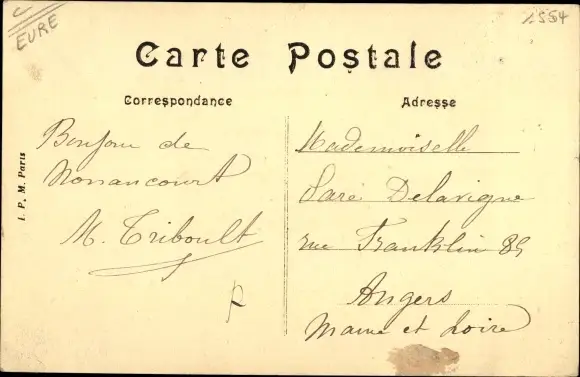 EURE
1554
Carte Postale
Correspondance
Adresse
Bonjour de
Nonancourt
M. Triboult
Mademoiselle
Delavigne
rue Franklin 85
Angers
Maine et Loire
I. P. M. Paris